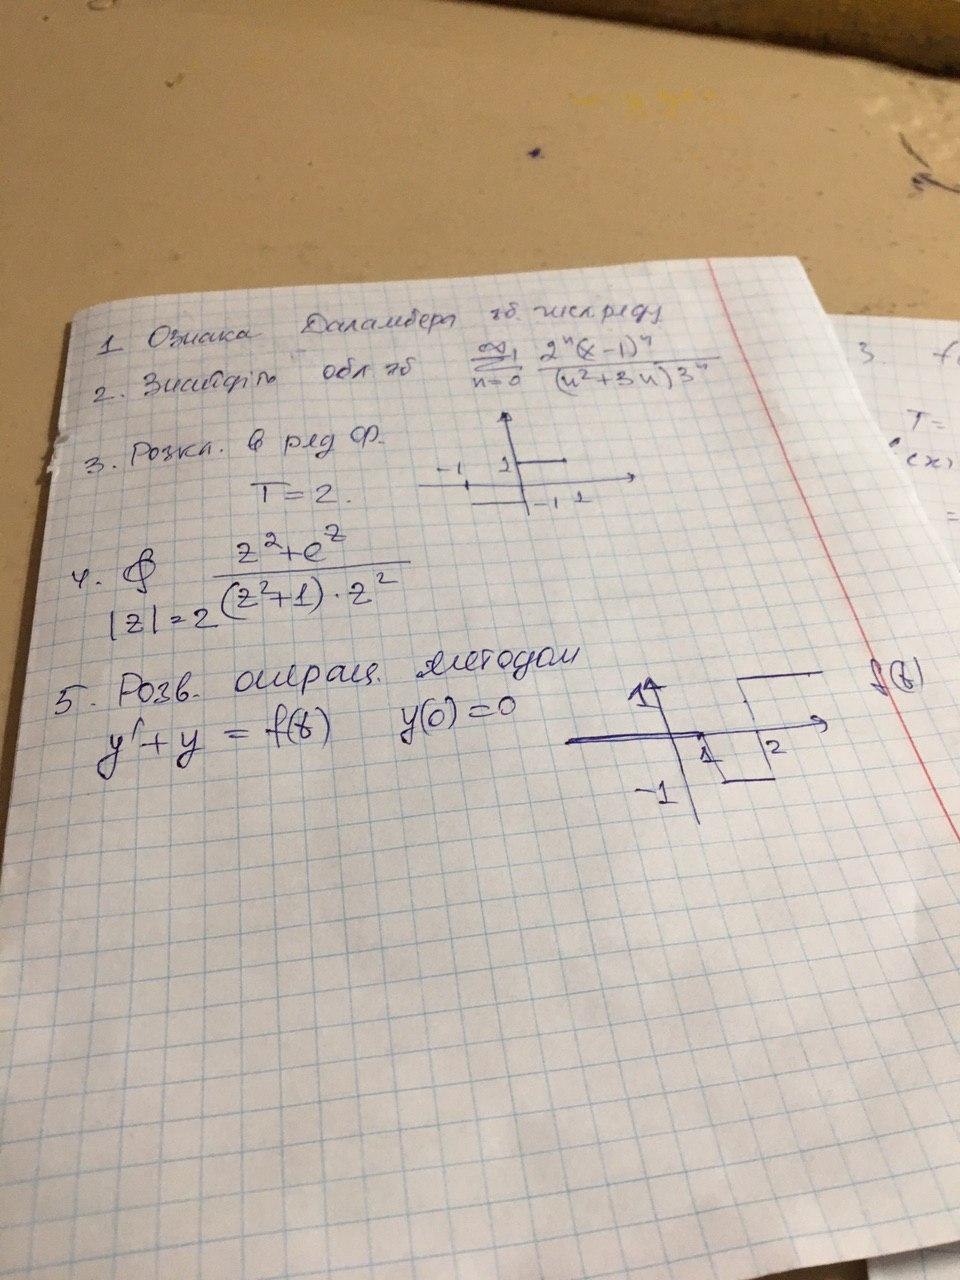 1 Ознака Даламбера зб. числ ряду
2. Знайдіть обл зб ∞ Σ n=0 2ⁿ(x-1)ⁿ / (n²+3n)3ⁿ
3. Розкл. в ряд Ф.
T=2.
-1 1 -1 1
4. ∮ |z|=2 z²+e^z / (z²+1)·z²
5. Розв. операц. методом
y'+y = f(t) y(0)=0
1 -1 1 2 f(t)
3.
T=
(x)
=